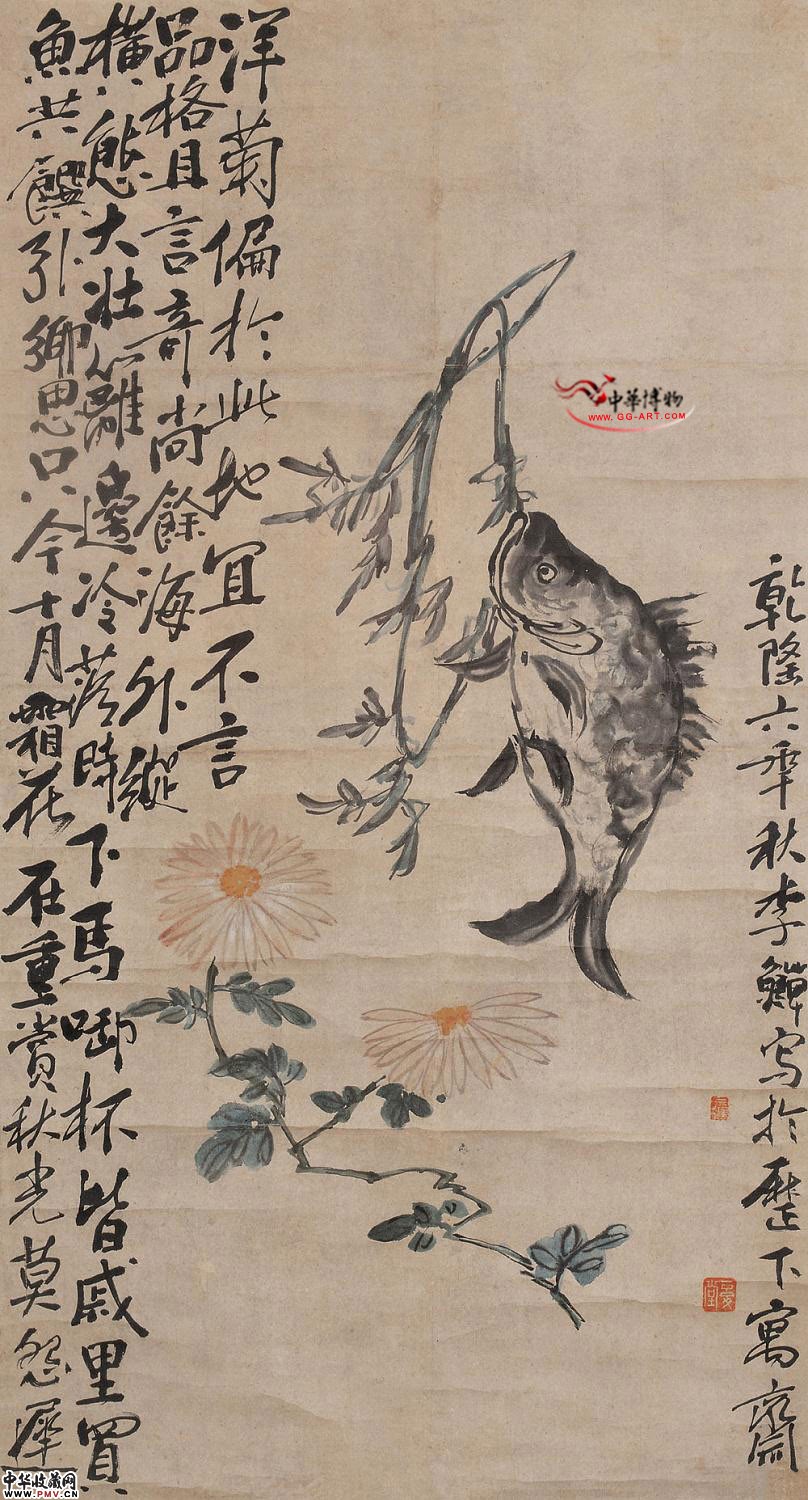 乾隆六年秋李鱓寫於歷下寓齋
洋菊偏於此地宜不言
品格且言奇尚餘海外縱
橫態大壯籬邊冷落時下馬啣杯皆戚里買
魚共饌引鄉思只今十月霜花在重賞秋光莫怨遲
中華博物
WWW.GG-ART.COM
中华收藏网
WWW.PMV.CN